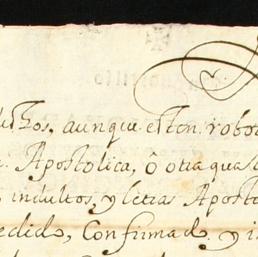 aunque esten robo
Apostolica, ô otra qual
indultos, y letras Aposto
cedido, Confirmad, y i